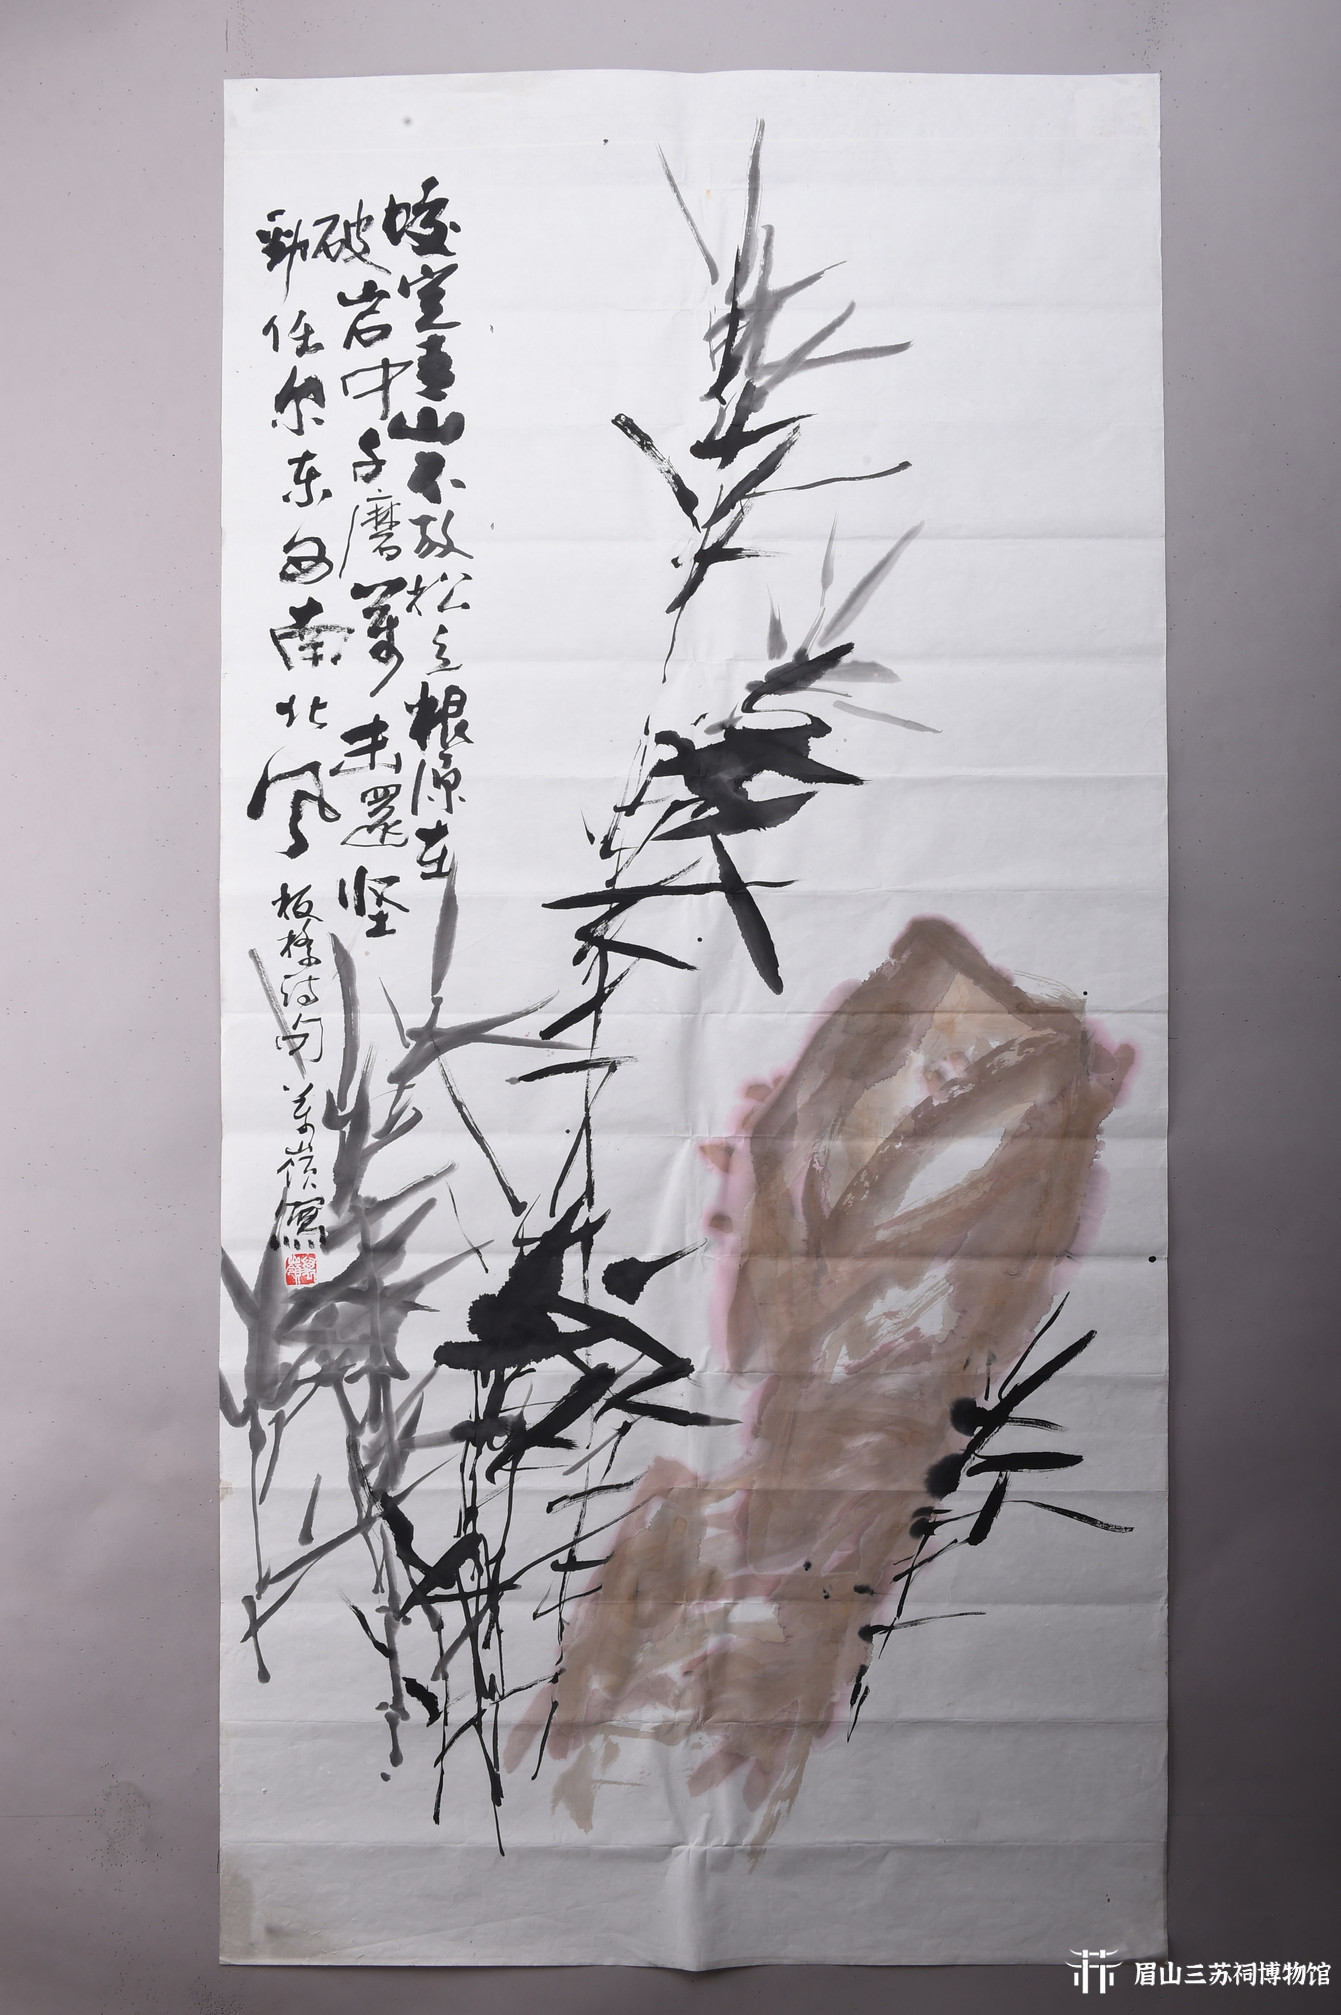 蛟定青山不放松立根原在
破岩中千磨萬击還坚
勁任尔东西南北风
板桥诗句 萬嶺寫
眉山三苏祠博物馆